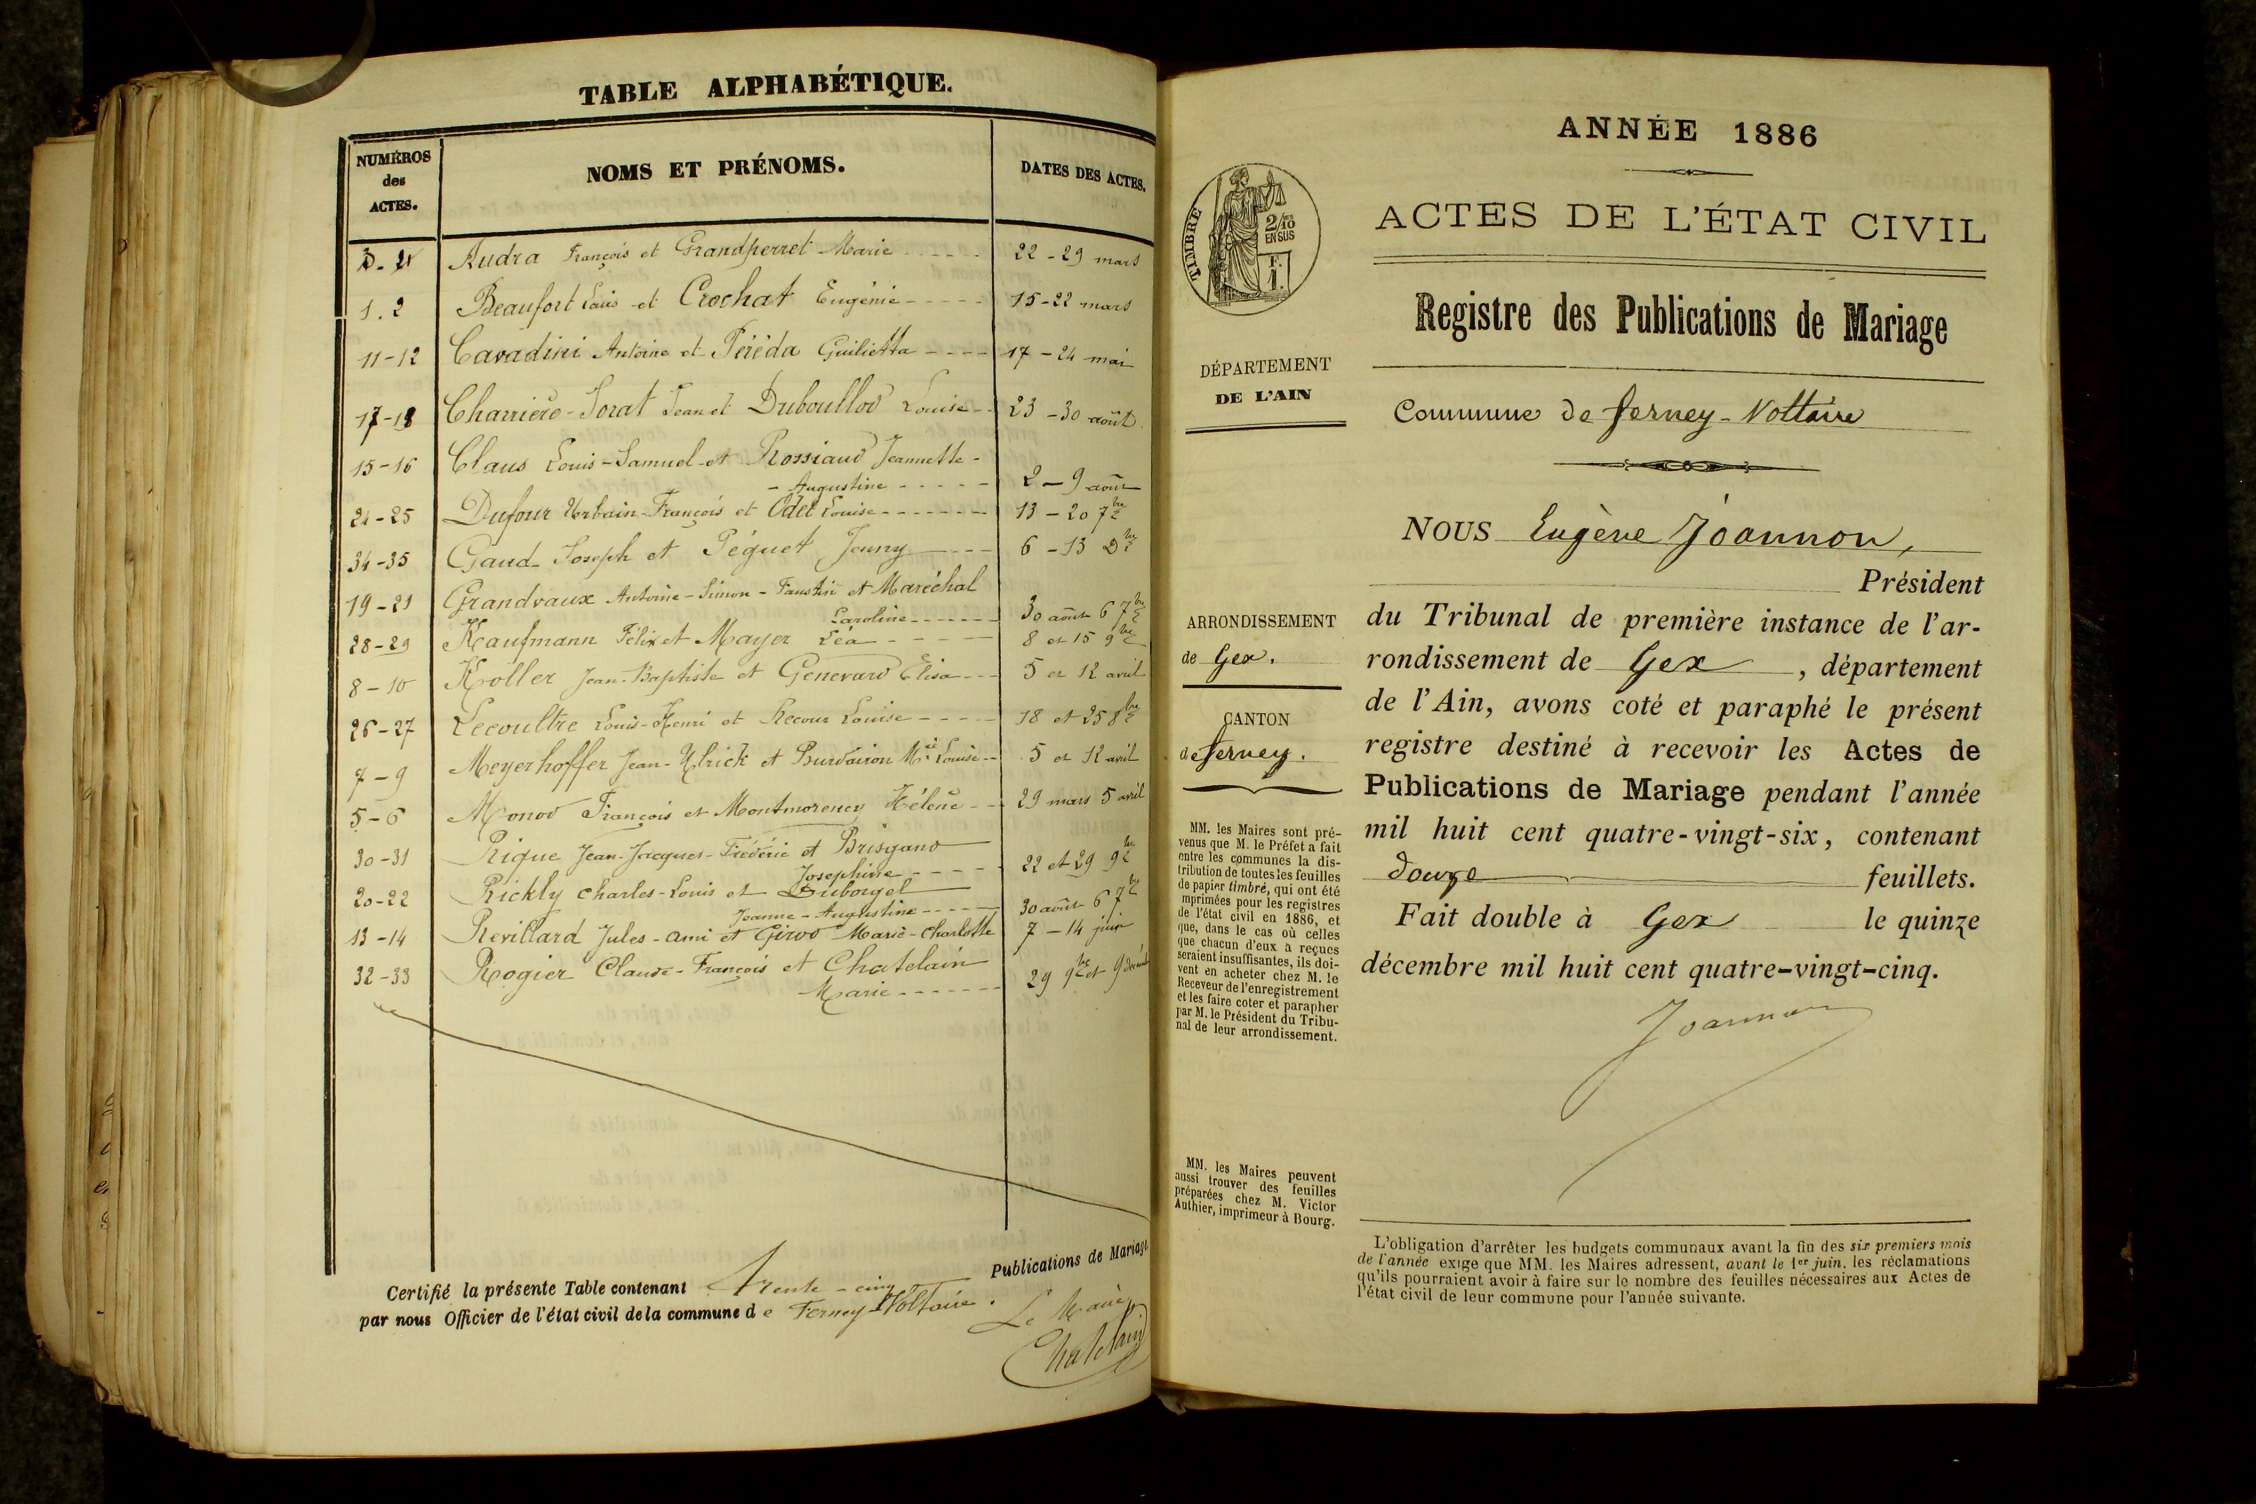 TABLE ALPHABÉTIQUE.
NUMÉROS
des
ACTES.
NOMS ET PRÉNOMS.
DATES DES ACTES.
Audra François et Grandperret Marie 22 - 29 mars
1. 2 Beaufort Louis et Crochat Eugénie 15 - 22 mars
11 - 12 Cavadini Antoine et Péréda Guilietta 17 - 24 mai
17 - 18 Charrière - Sorat Jean et Duboullod Louise 23 - 30 août
15 - 16 Claus Louis - Samuel et Rossiaud Jeannette -
- Augustine 2 - 9 août
24 - 25 Dufour Urbain - François et Odet Louise 13 - 20 7bre
34 - 35 Gaud Joseph et Péguet Jenny 6 - 13 Dbre
19 - 21 Grandvaux Antoine - Simon - Faustin et Maréchal
Caroline 30 août 6 7bre
28 - 29 Kaufmann Félix et Mayer Léa 8 et 15 9bre
8 - 10 Koller Jean - Baptiste et Genevard Elisa 5 et 12 avril
26 - 27 Lecoultre Louis - Henri et Recour Louise 18 et 25 8bre
7 - 9 Meyerhoffer Jean - Ulrich et Burdairon Mie Louise 5 et 12 avril
5 - 6 Monod François et Montmorency Hélène 29 mars 5 avril
30 - 31 Rique Jean - Jacques - Frédéric et Brisgand
Josephine 22 et 29 9bre
20 - 22 Rickly Charles - Louis et Dubouget
Jeanne - Augustine 30 août 6 7bre
13 - 14 Revillard Jules - Ami et Girod Marie - Charlotte 7 - 14 juin
32 - 33 Rogier Claude - François et Chatelain
Marie 29 9bre et 9 décembre
Certifié la présente Table contenant Trente - cinq Publications de Mariage
par nous Officier de l'état civil de la commune de Ferney - Voltaire.
Le Maire,
Chatelain
ANNÉE 1886
ACTES DE L'ÉTAT CIVIL
TIMBRE
2/10
EN SUS
F.
1.
Registre des Publications de Mariage
DÉPARTEMENT
DE L'AIN
Commune de Ferney - Voltaire
NOUS Eugène Joannon,
Président
du Tribunal de première instance de l'ar-
rondissement de Gex, département
de l'Ain, avons coté et paraphé le présent
registre destiné à recevoir les Actes de
Publications de Mariage pendant l'année
mil huit cent quatre-vingt-six, contenant
douze feuillets.
Fait double à Gex le quinze
décembre mil huit cent quatre-vingt-cinq.
Joannon
ARRONDISSEMENT
de Gex.
CANTON
de Ferney.
MM. les Maires sont pré-
venus que M. le Préfet a fait
entre les communes la dis-
tribution de toutes les feuilles
de papier timbré, qui ont été
imprimées pour les registres
de l'état civil en 1886, et
que, dans le cas où celles
que chacun d'eux a reçues
seraient insuffisantes, ils doi-
vent en acheter chez M. le
Receveur de l'enregistrement
et les faire coter et parapher
par M. le Président du Tribu-
nal de leur arrondissement.
MM. les Maires peuvent
aussi trouver des feuilles
préparées chez M. Victor
Authier, imprimeur à Bourg.
L'obligation d'arrêter les budgets communaux avant la fin des six premiers mois
de l'année exige que MM. les Maires adressent, avant le 1er juin, les réclamations
qu'ils pourraient avoir à faire sur le nombre des feuilles nécessaires aux Actes de
l'état civil de leur commune pour l'année suivante.